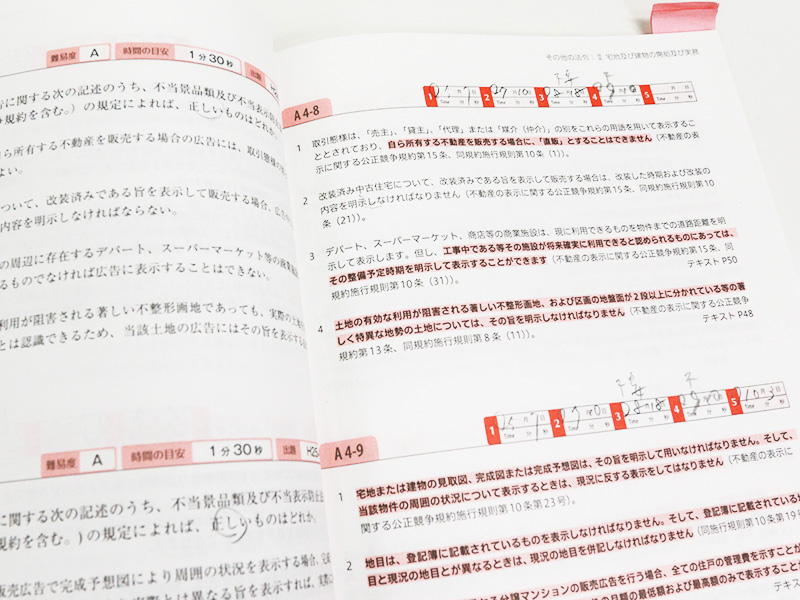 難易度 A 時間の目安 1分30秒 出題
告に関する次の記述のうち、不当景品類及び不当表示防
争規約を含む。）の規定によれば、正しいものはどれか
自ら所有する不動産を販売する場合の広告には、取引態様の
よい。
ついて、改装済みである旨を表示して販売する場合、広告
内容を明示しなければならない。
の周辺に存在するデパート、スーパーマーケット等の商業施
るものでなければ広告に表示することはできない。
利用が阻害される著しい不整形画地であっても、実際の土地を
とは認識できるため、当該土地の広告にはその旨を表示する
難易度 A 時間の目安 1分30秒 出題 H25
に関する次の記述のうち、不当景品類及び不当表示防止
規約を含む。）の規定によれば、正しいものはどれか。
販売広告で完成予想図により周囲の状況を表示する場合、
実際とは異なる旨を表示すれば、
その他の法令：Ⅱ 宅地及び建物の需給及び実務
A4-8
1 2 3 4 5
Time 分 秒
1 取引態様は、「売主」、「貸主」、「代理」または「媒介（仲介）」の別をこれらの用語を用いて表示するこ
ととされており、自ら所有する不動産を販売する場合に、「直販」とすることはできません（不動産の表
示に関する公正競争規約第15条、同規約施行規則第10条（1））。
2 改装済み中古住宅について、改装済みである旨を表示して販売する場合は、改装した時期および改装の
内容を明示しなければなりません（不動産の表示に関する公正競争規約第15条、同規約施行規則第10
条（21））。
3 デパート、スーパーマーケット、商店等の商業施設は、現に利用できるものを物件までの道路距離を明
示して表示します。但し、工事中である等その施設が将来確実に利用できると認められるものにあっては、
その整備予定時期を明示して表示することができます（不動産の表示に関する公正競争規約第15条、同
規約施行規則第10条（31））。
テキスト P50
4 土地の有効な利用が阻害される著しい不整形画地、および区画の地盤面が2段以上に分かれている等の著
しく特異な地勢の土地については、その旨を明示しなければなりません（不動産の表示に関する公正競争
規約第13条、同規約施行規則第8条（11））。
テキスト P48
A4-9
1 2 3 4 5
Time 分 秒
1 宅地または建物の見取図、完成図または完成予想図は、その旨を明示して用いなければなりません。そして、
当該物件の周囲の状況について表示するときは、現況に反する表示をしてはなりません（不動産の表示に
関する公正競争規約施行規則第10条第23号）。
2 地目は、登記簿に記載されているものを表示しなければなりません。そして、登記簿に記載されている
目と現況の地目とが異なるときは、現況の地目を併記しなければなりません（同施行規則第10条第19
る分譲マンションの販売広告を行う場合、全ての住戸の管理費を示すことが
の月額の最低額および最高額のみで表示することが
テキス